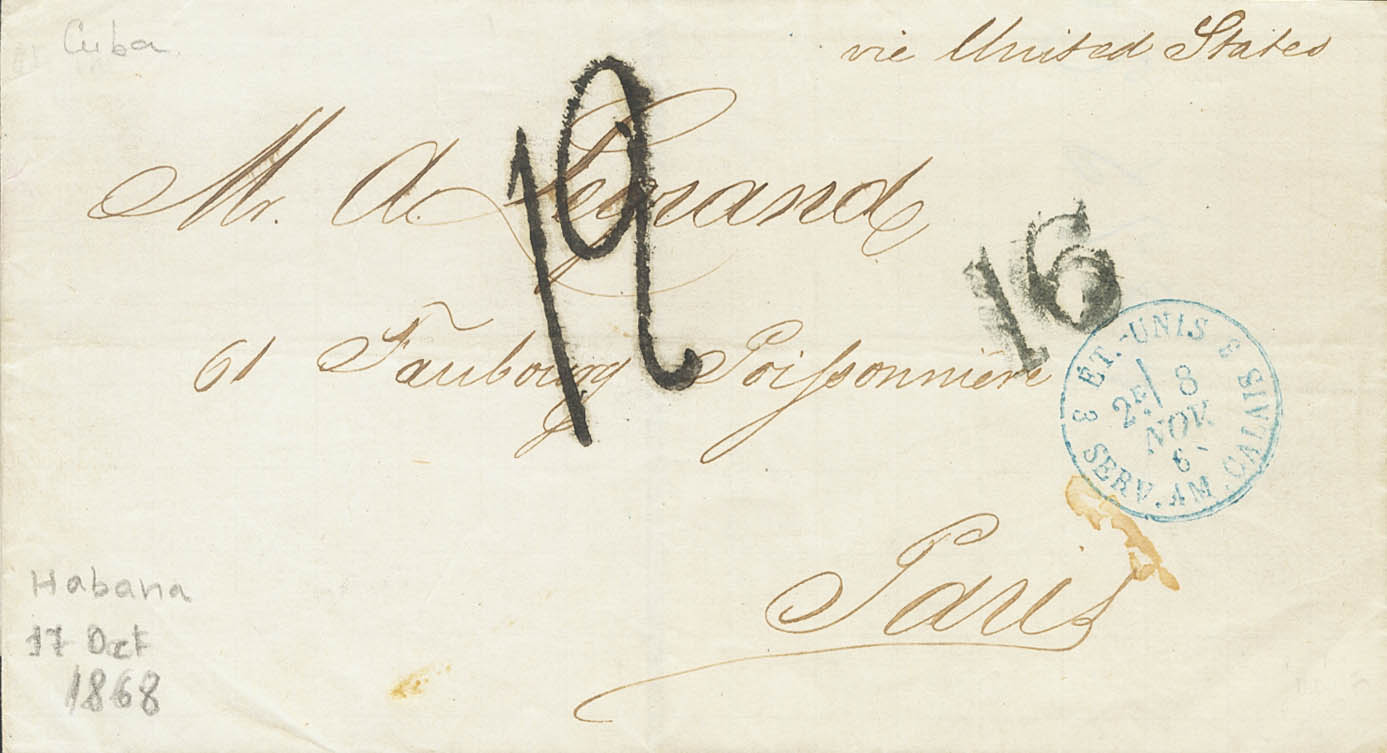 Cuba
vie United States
Mr. A. Legrand
12
16
61 Faubourg Poissonnière
ET.-UNIS
2E/ 8
NOV.
6
SERV. AM. CALAIS
Paris
Habana
17 Oct
1868